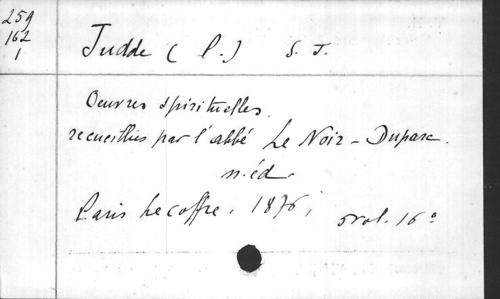 259
162
1
Judde (P.) S. J.
Oeuvres spirituelles.
recueillies par l'abbé Le Noir-Duparc.
n. éd.
Paris Lecoffre, 1876,
5 vol. 16°